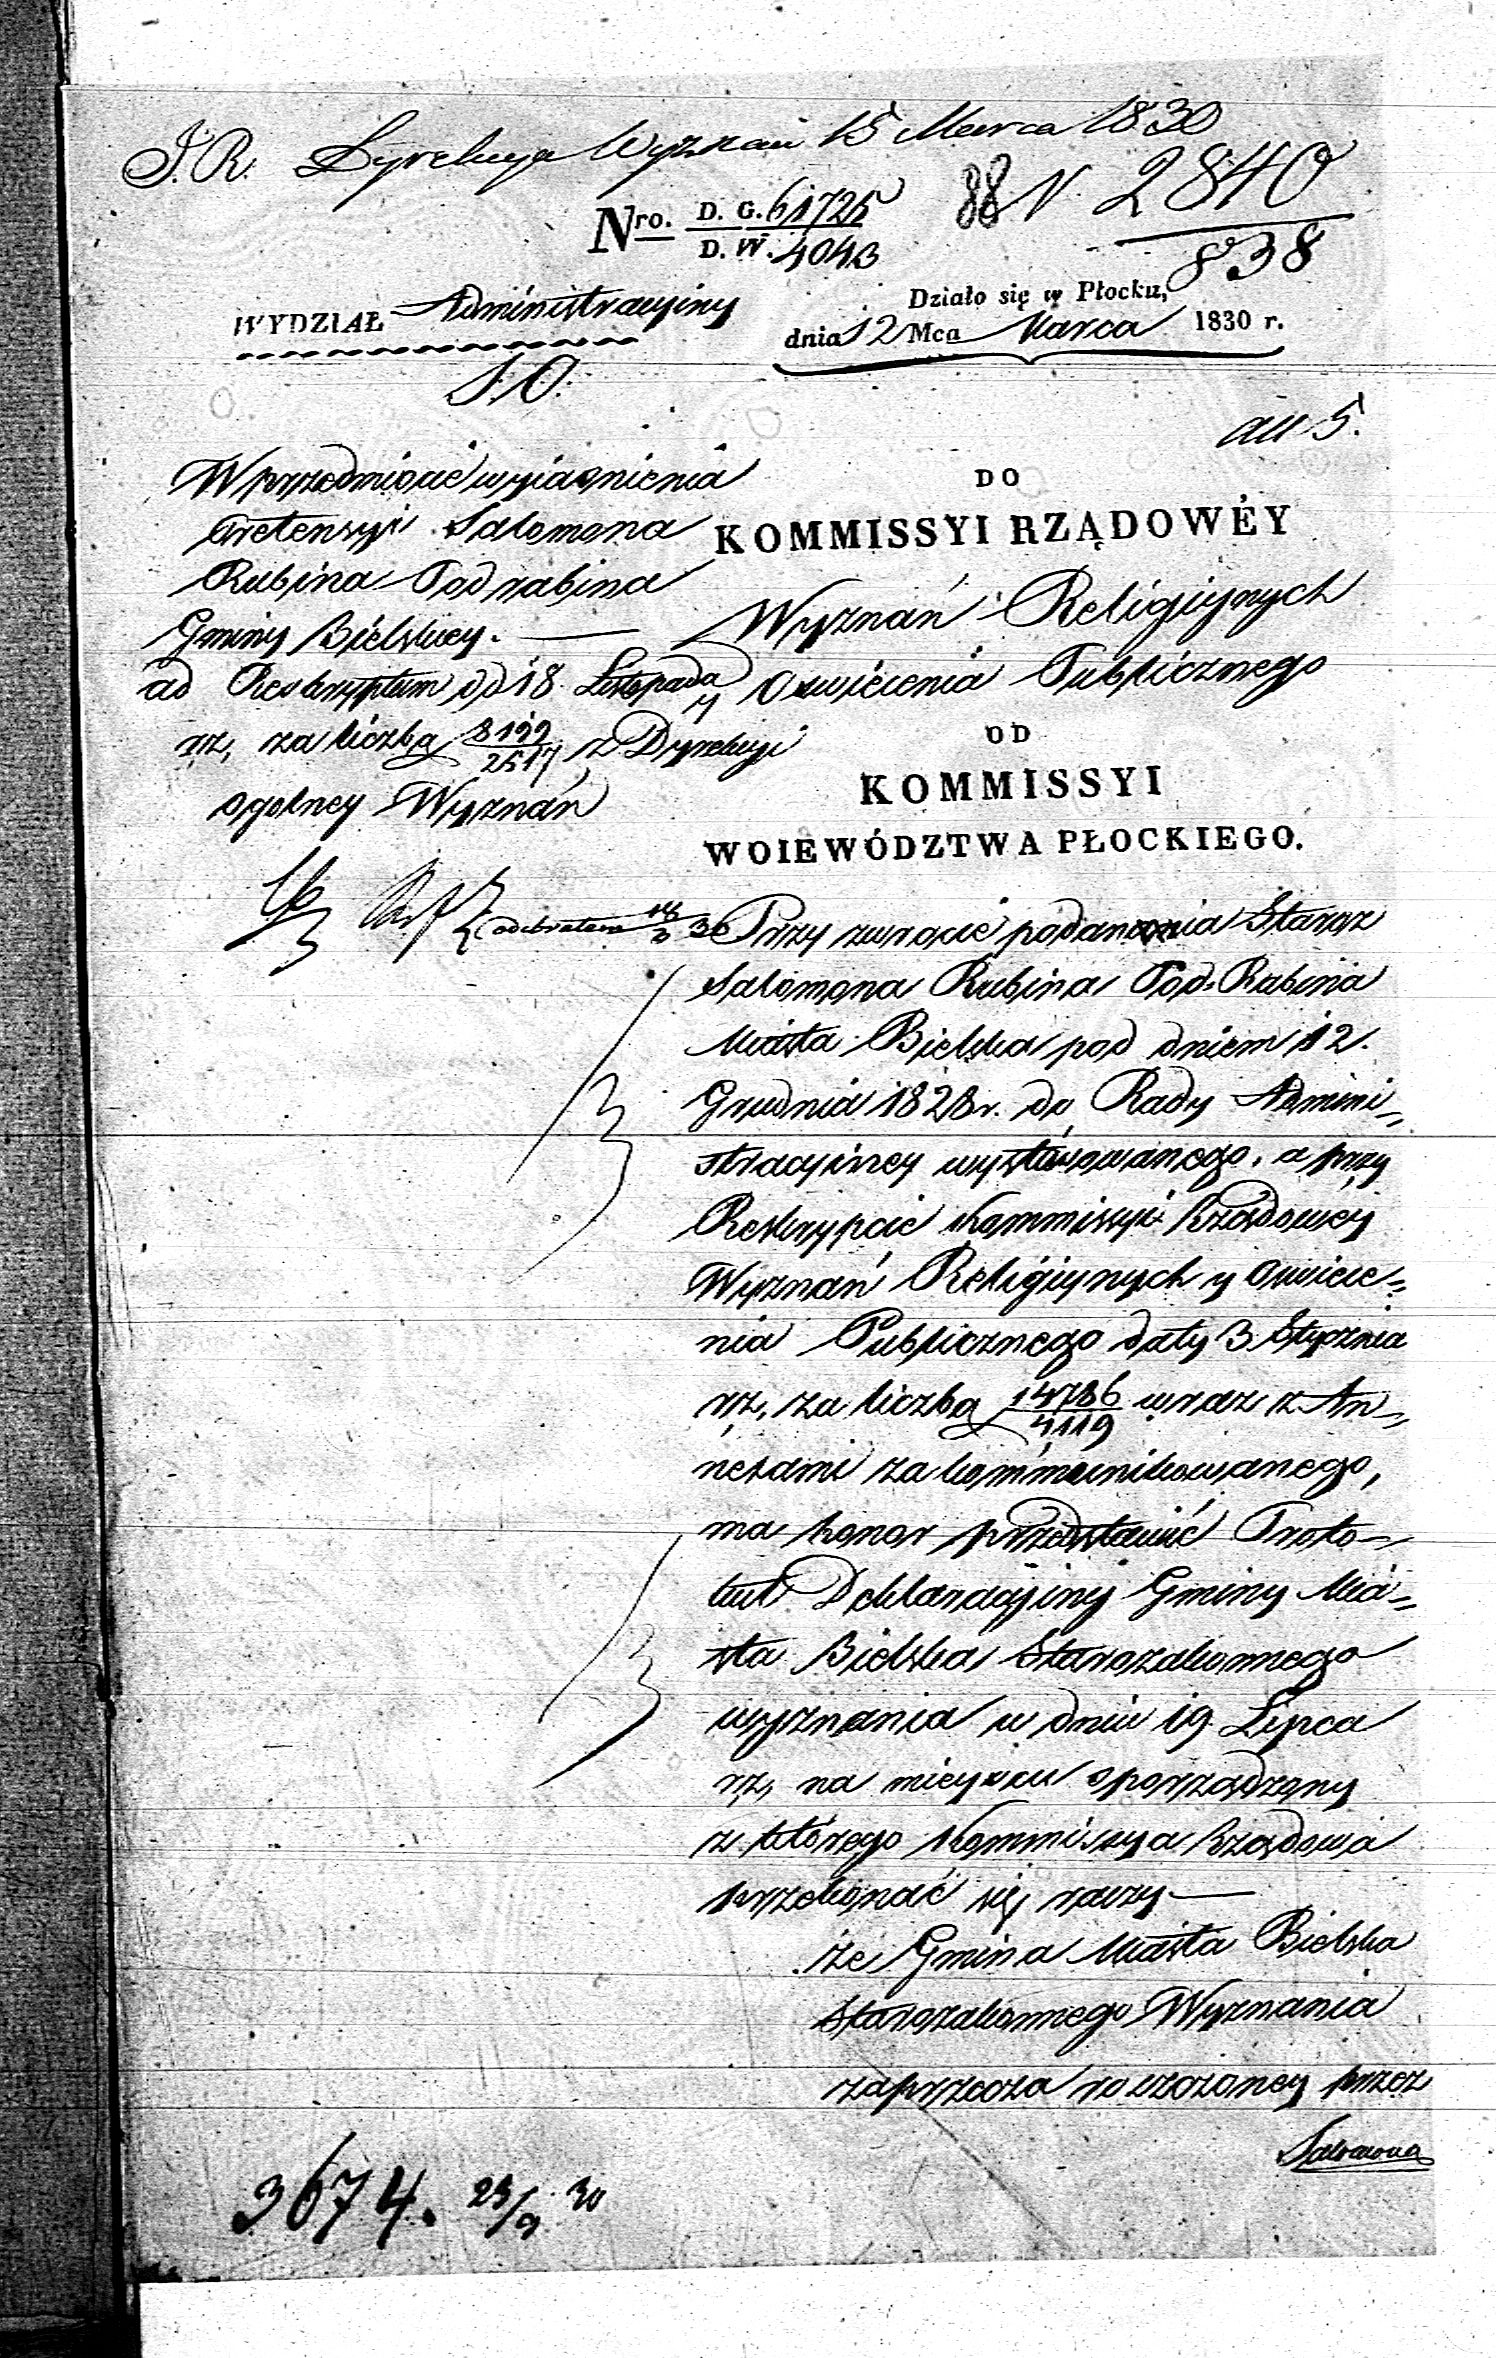 J. R. Dyrekcya Wyznań 15 Marca 1830
Nro. D. G. 61725
D. W. 4043
88 N. 2840
838
WYDZIAŁ Administracyiny
Działo się w Płocku,
dnia 12 Mca Marca 1830 r.
S. O.
all 5.
W przedmiocie wyiaśnienia
Pretensyi Salomona
Rubina Podrabina
Gminy Bielskiey. —
ad Reskryptum dd 18 Listopada
rz, za liczbą 8199/2517 z Dyrekcyi
ogolney Wyznań
odebrałem
DO
KOMMISSYI RZĄDOWÉY
Wyznań Religiynych
y Oświecenia Publicznego
OD
KOMMISSYI
WOIEWÓDZTWA PŁOCKIEGO.
Przy zwrocie podania Staroz
Salomona Rubina Pod-Rabina
Miasta Bielska pod dniem 12.
Grudnia 1828 r. do Rady Admini-
stracyiney wystósowanego, a przy
Reskrypcie Kommissyi Rządowéy
Wyznań Religiynych y Oświece-
nia Publicznego daty 3 Stycznia
rz, za liczbą 14786/4119 wraz z An-
nexami zakommunikowanego,
ma honor przedstawić Proto-
kuł Deklaracyiny Gminy Mia-
sta Bielska Starozakonnego
wyznania w dniu 19 Lipca
rz, na mieyscu sporządzony
z którego Kommissya Rządowa
przekonać się raczy —
że Gmina Miasta Bielska
Starozakonnego Wyznania
zaprzecza roszczoney przez
Salomona
3674. 23/9 30